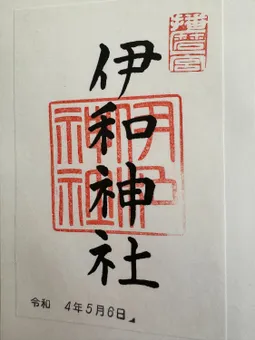 播磨一宮
伊和神社
伊和
神社
令和 4年5月6日